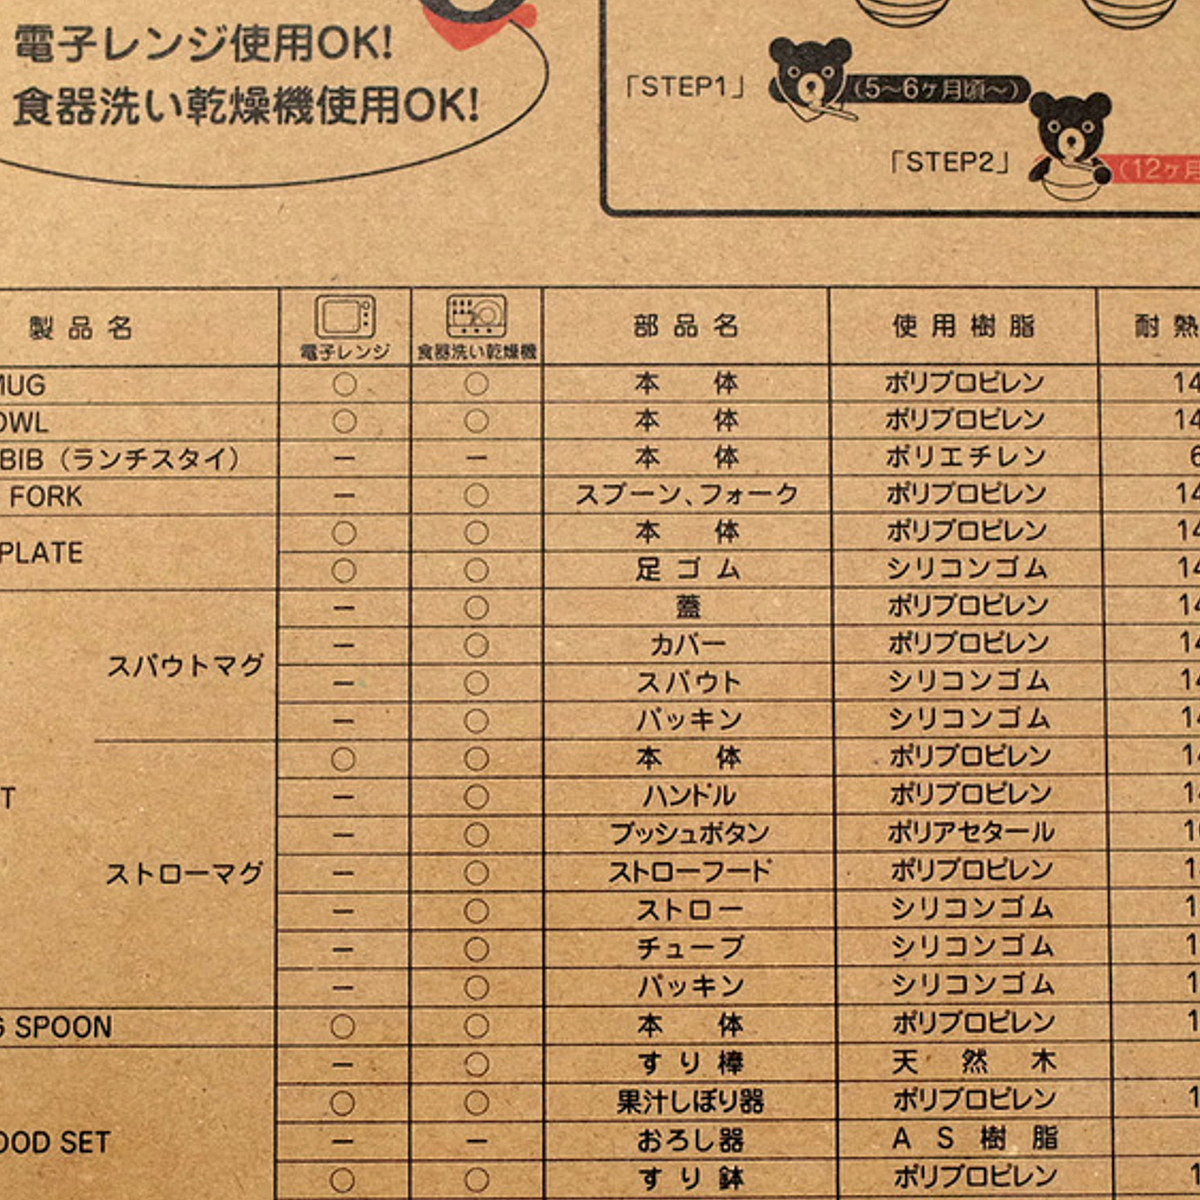 電子レンジ使用OK!
食器洗い乾燥機使用OK!
「STEP1」 (5〜6ヶ月頃〜)
「STEP2」 (12ヶ月
製品名 電子レンジ 食器洗い乾燥機 部品名 使用樹脂 耐熱
MUG ○ ○ 本体 ポリプロピレン 14
OWL ○ ○ 本体 ポリプロピレン 14
BIB（ランチスタイ） － － 本体 ポリエチレン 6
FORK － ○ スプーン、フォーク ポリプロピレン 14
PLATE ○ ○ 本体 ポリプロピレン 14
○ ○ 足ゴム シリコンゴム 14
－ ○ 蓋 ポリプロピレン 14
－ ○ カバー ポリプロピレン 14
スパウトマグ － ○ スパウト シリコンゴム 14
－ ○ パッキン シリコンゴム 14
○ ○ 本体 ポリプロピレン 14
T － ○ ハンドル ポリプロピレン 14
－ ○ プッシュボタン ポリアセタール 1
ストローマグ － ○ ストローフード ポリプロピレン 1
－ ○ ストロー シリコンゴム 1
－ ○ チューブ シリコンゴム 1
－ ○ パッキン シリコンゴム 1
G SPOON ○ ○ 本体 ポリプロピレン 1
－ ○ すり棒 天然木
○ ○ 果汁しぼり器 ポリプロピレン 1
OOD SET － － おろし器 AS樹脂
○ ○ すり鉢 ポリプロピレン 1